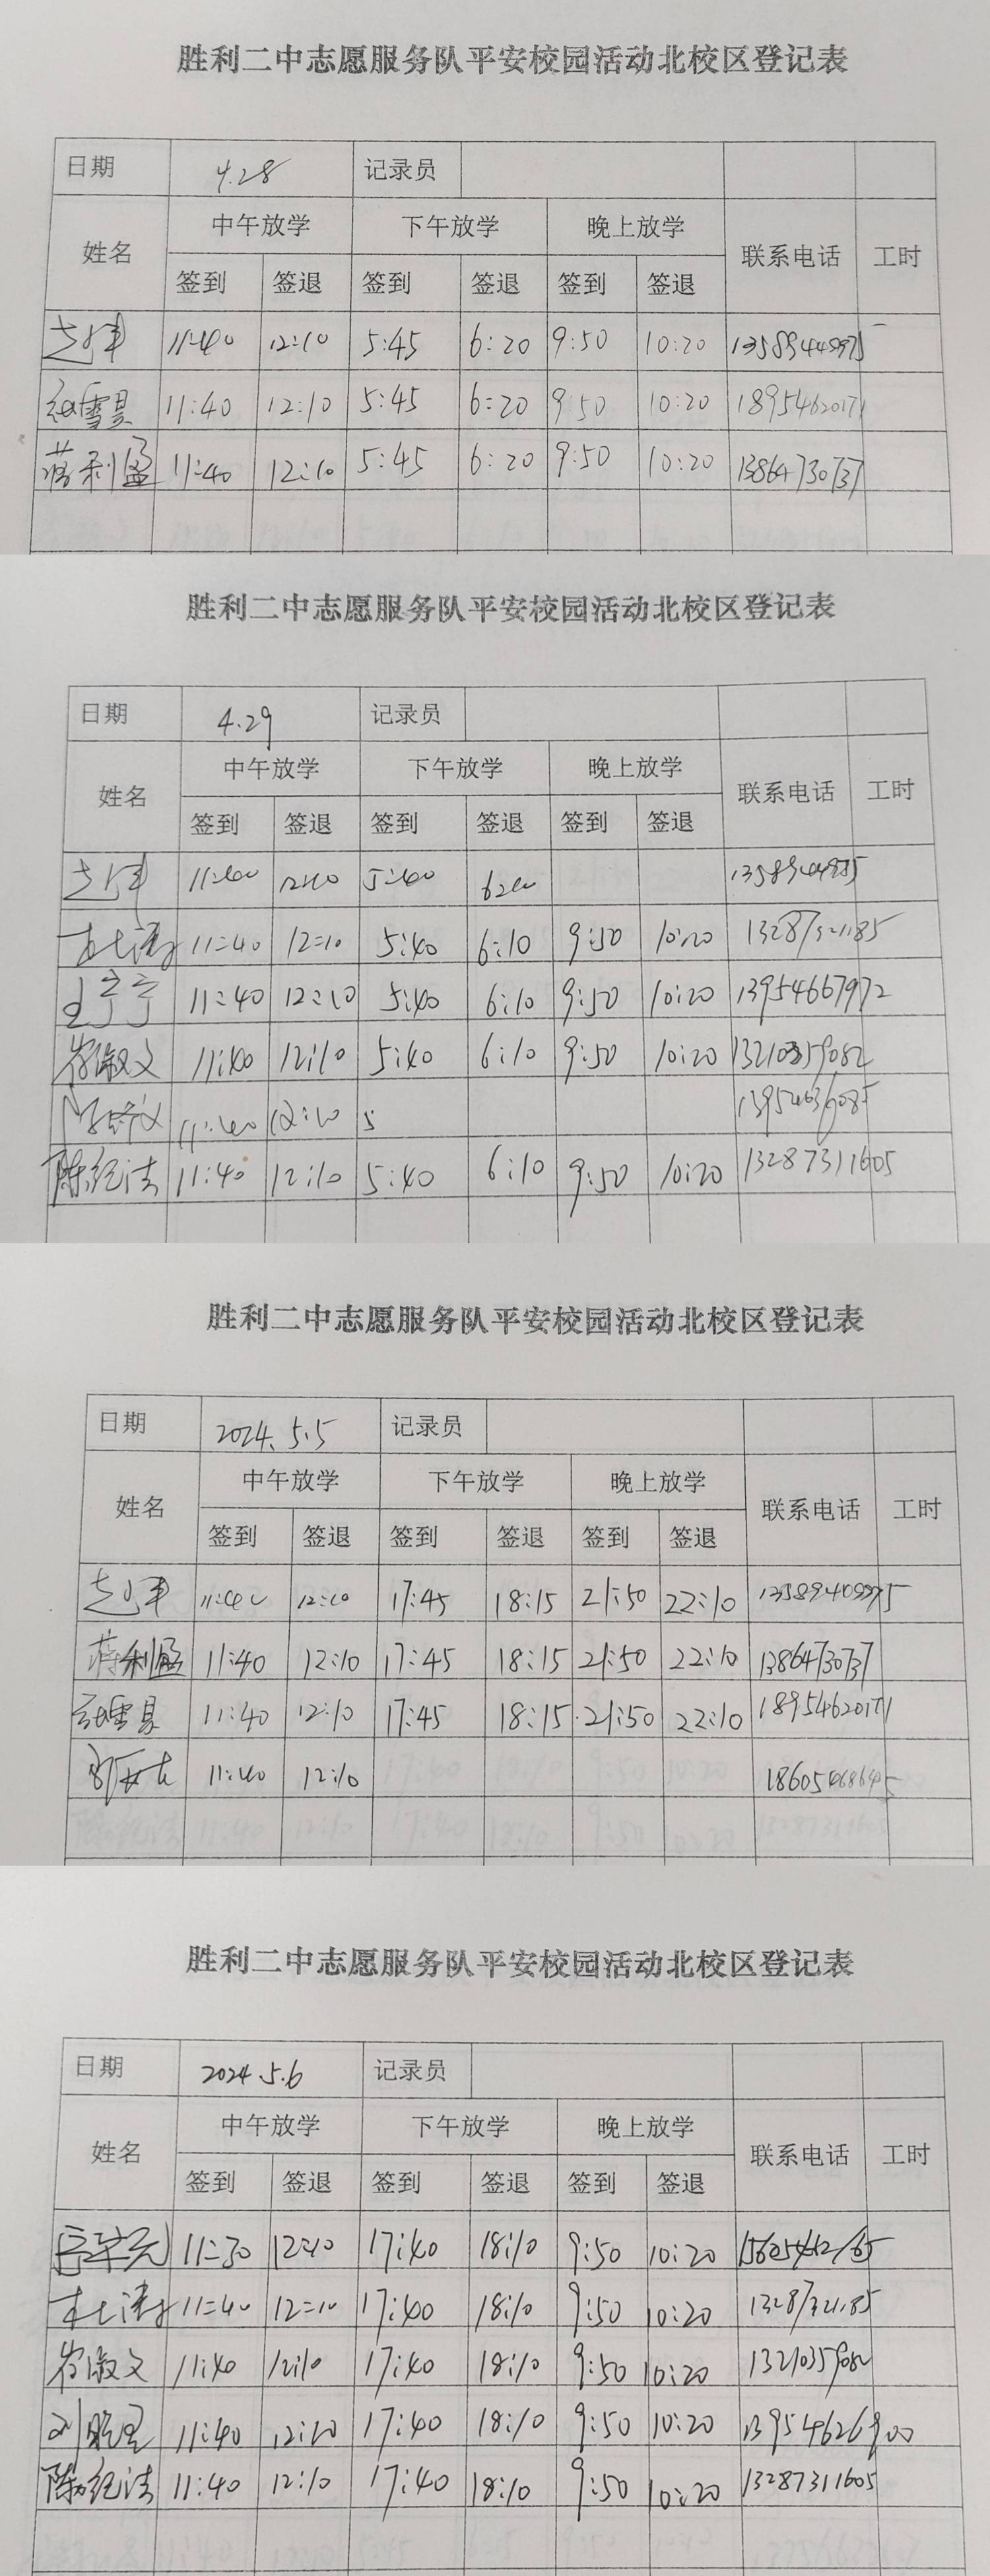 胜利二中志愿服务队平安校园活动北校区登记表
日期 4.28 记录员
中午放学 下午放学 晚上放学
姓名 联系电话 工时
签到 签退 签到 签退 签到 签退
11:40 12:10 5:45 6:20 9:50 10:20
雪昊 11:40 12:10 5:45 6:20 9:50 10:20 18954620171
蒋利盈 11:40 12:10 5:45 6:20 9:50 10:20 13864730737
胜利二中志愿服务队平安校园活动北校区登记表
日期 4.29 记录员
中午放学 下午放学 晚上放学
姓名 联系电话 工时
签到 签退 签到 签退 签到 签退
11:40 12:10 5:40
11:40 12:10 5:40 6:10 9:50 10:20
王宁宁 11:40 12:10 5:40 6:10 9:50 10:20 13954667972
岑淑文 11:40 12:10 5:40 6:10 9:50 10:20 13210359082
11:40 12:10 5
陈纪法 11:40 12:10 5:40 6:10 9:50 10:20 13287311605
胜利二中志愿服务队平安校园活动北校区登记表
日期 2024.5.5 记录员
中午放学 下午放学 晚上放学
姓名 联系电话 工时
签到 签退 签到 签退 签到 签退
11:40 12:10 17:45 18:15 21:50 22:10
蒋利盈 11:40 12:10 17:45 18:15 21:50 22:10 13864730737
雪昊 11:40 12:10 17:45 18:15 21:50 22:10 18954620171
11:40 12:10
胜利二中志愿服务队平安校园活动北校区登记表
日期 2024.5.6 记录员
中午放学 下午放学 晚上放学
姓名 联系电话 工时
签到 签退 签到 签退 签到 签退
11:30 12:10 17:40 18:10 9:50 10:20
11:40 12:10 17:40 18:10 9:50 10:20
岑淑文 11:40 12:10 17:40 18:10 9:50 10:20 13210359082
11:40 12:10 17:40 18:10 9:50 10:20 13954626900
陈纪法 11:40 12:10 17:40 18:10 9:50 10:20 13287311605